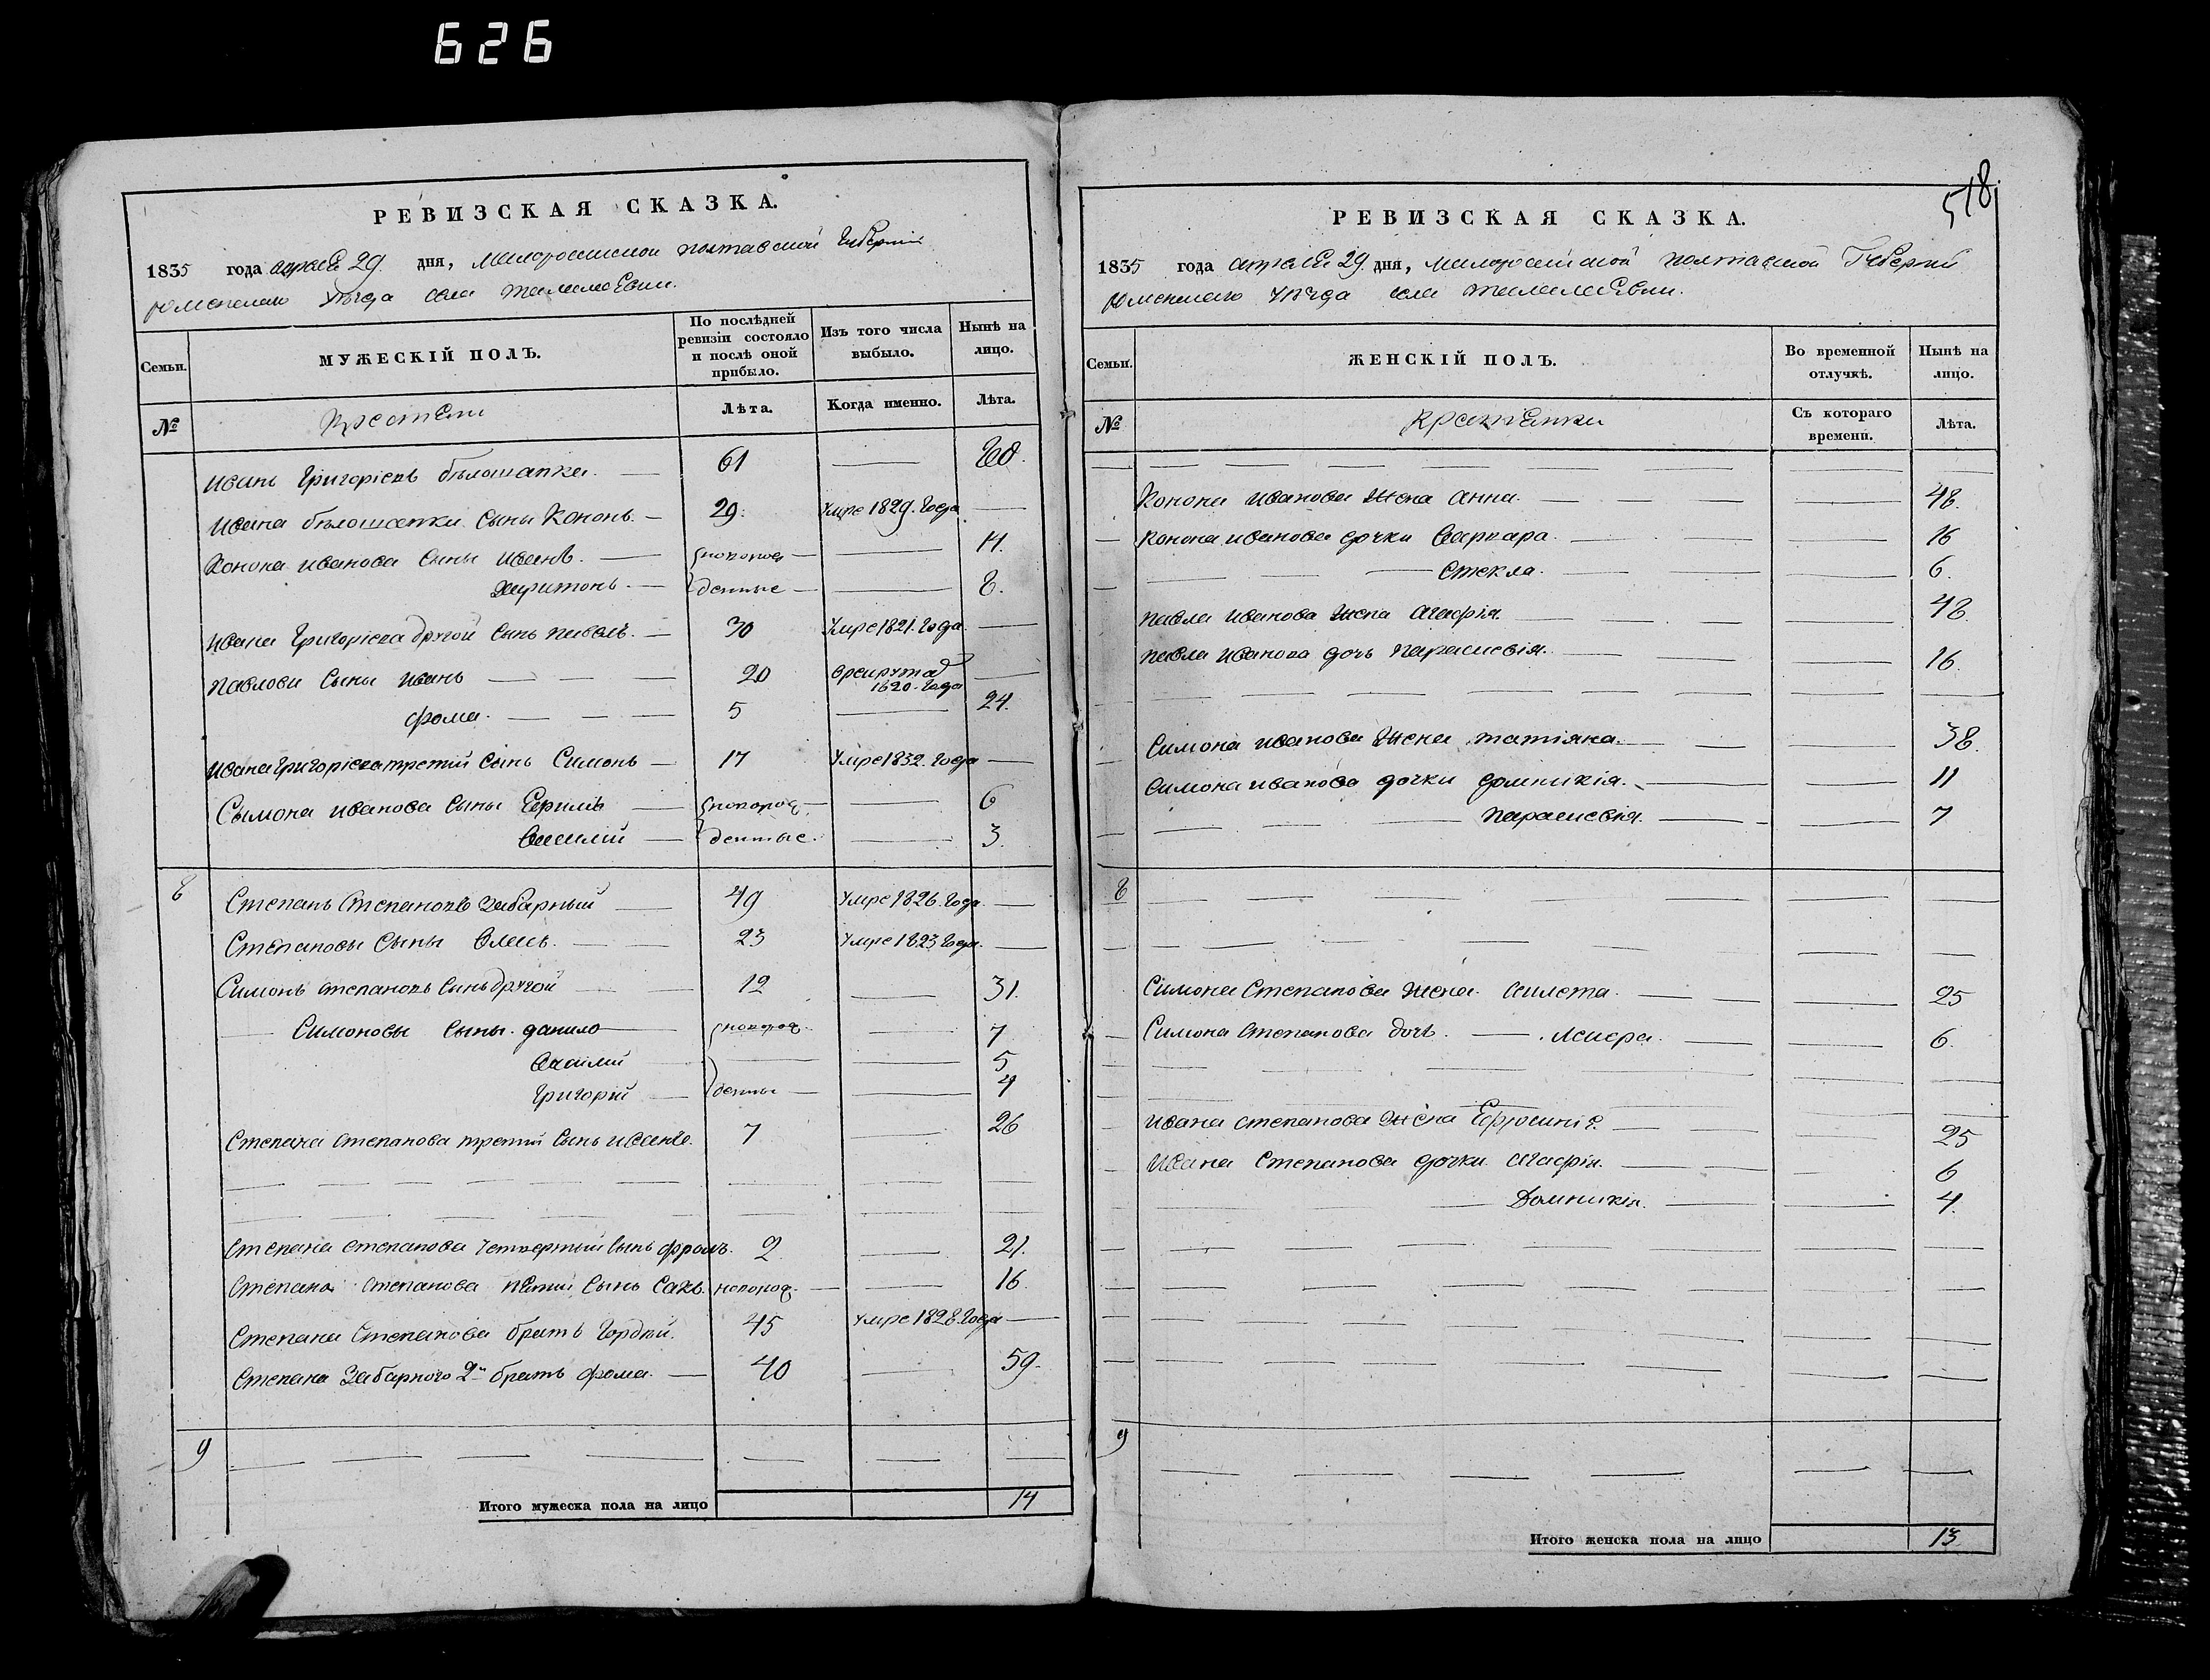 626
РЕВИЗСКАЯ СКАЗКА.
1835 года апреля 29 дня, Малоросийской полтавской Губернии
Роменского уѣзда села
Семьи.
МУЖЕСКІЙ ПОЛЪ.
По послѣдней ревизіи состояло и послѣ оной прибыло.
Изъ того числа выбыло.
Нынѣ на лицо.
№
Лѣта.
Когда именно.
Лѣта.
Иванъ Григоріевъ бѣлошапка. 61
Ивана бѣлошапки сыны Кононъ. 29. Умре 1829. Года
Конона иванова сыны Иванъ. новорож 14.
Харитонъ. денные 8.
Ивана Григоріева другой сынъ павелъ. 30 Умре 1821. Года.
павлови сыны Иванъ 20 1820. Года
фома. 5 24.
Ивана Григоріева третий сынъ Симонъ 17 Умре 1832. Года
Сымона иванова сыны новорож. 6
Василий денные. 3.
8 Степанъ Степановъ Забарный 49 Умре 1826. Года.
Степановы сыны 23 Умре 1823 Года.
Симонъ степановъ сынъ другой 12 31.
Симоновы сыны. данило новорож. 7
Василий 5
Григорій денны 4
Степана степанова третий сынъ иванъ. 7 26
Степана степанова четвертый сынъ 2 21.
Степана степанова сынъ новорож. 16.
Степана Степанова братъ Гордѣй. 45 Умре 1828. Года
Степана Забарного 2й братъ фома. 40 59.
9
Итого мужеска пола на лицо 14
518.
РЕВИЗСКАЯ СКАЗКА.
1835 года апреля 29. дня, малоросийской полтавской Губерний
Роменского уѣзда села
Семьи.
ЖЕНСКІЙ ПОЛЪ.
Во временной отлучкѣ.
Нынѣ на лицо.
№
Крестьянки
Съ котораго времени.
Лѣта.
Конона иванова жена анна. 48.
Конона иванова дочки Варвара. 16
Стекла. 6.
павла иванова жена Агафія. 48.
павла иванова дочь параскевія. 16.
Симона иванова жена татіяна. 38.
Симона иванова дочки домникія. 11
параскевія. 7
8
Симона Степанова жена 25
Симона степанова дочь. 6.
Ивана степанова жена Ефросинія. 25
Ивана Степанова дочки агафія. 6
Домникія. 4.
9
Итого женска пола на лицо 13